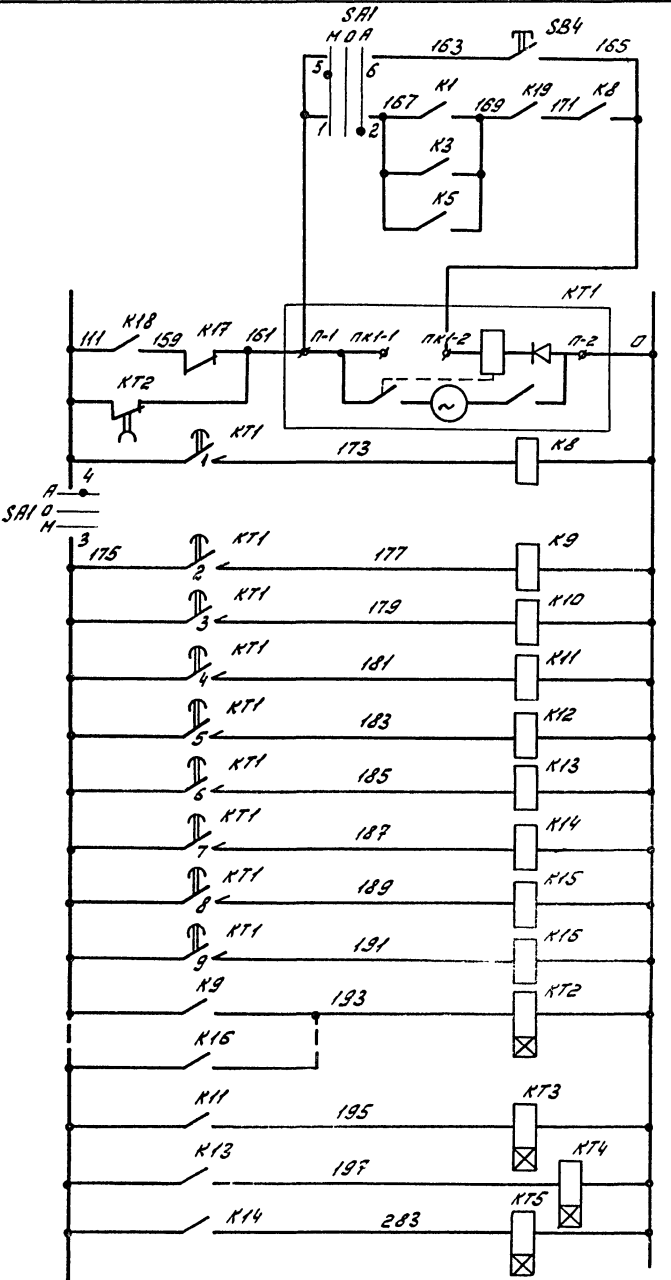 SA1
М О А
5
6
163
SB4
165
1
2
167
К1
169
К19
171
К8
К3
К5
КТ1
111
К18
159
К17
161
П-1
ПК1-1
ПК1-2
П-2
0
~
КТ2
КТ1
1
173
К8
4
А
SA1 О
М
3
175
КТ1
2
177
К9
КТ1
3
179
К10
КТ1
4
181
К11
КТ1
5
183
К12
КТ1
6
185
К13
КТ1
7
187
К14
КТ1
8
189
К15
КТ1
9
191
К15
К9
193
КТ2
К16
К11
195
КТ3
К13
197
КТ4
К14
283
КТ5